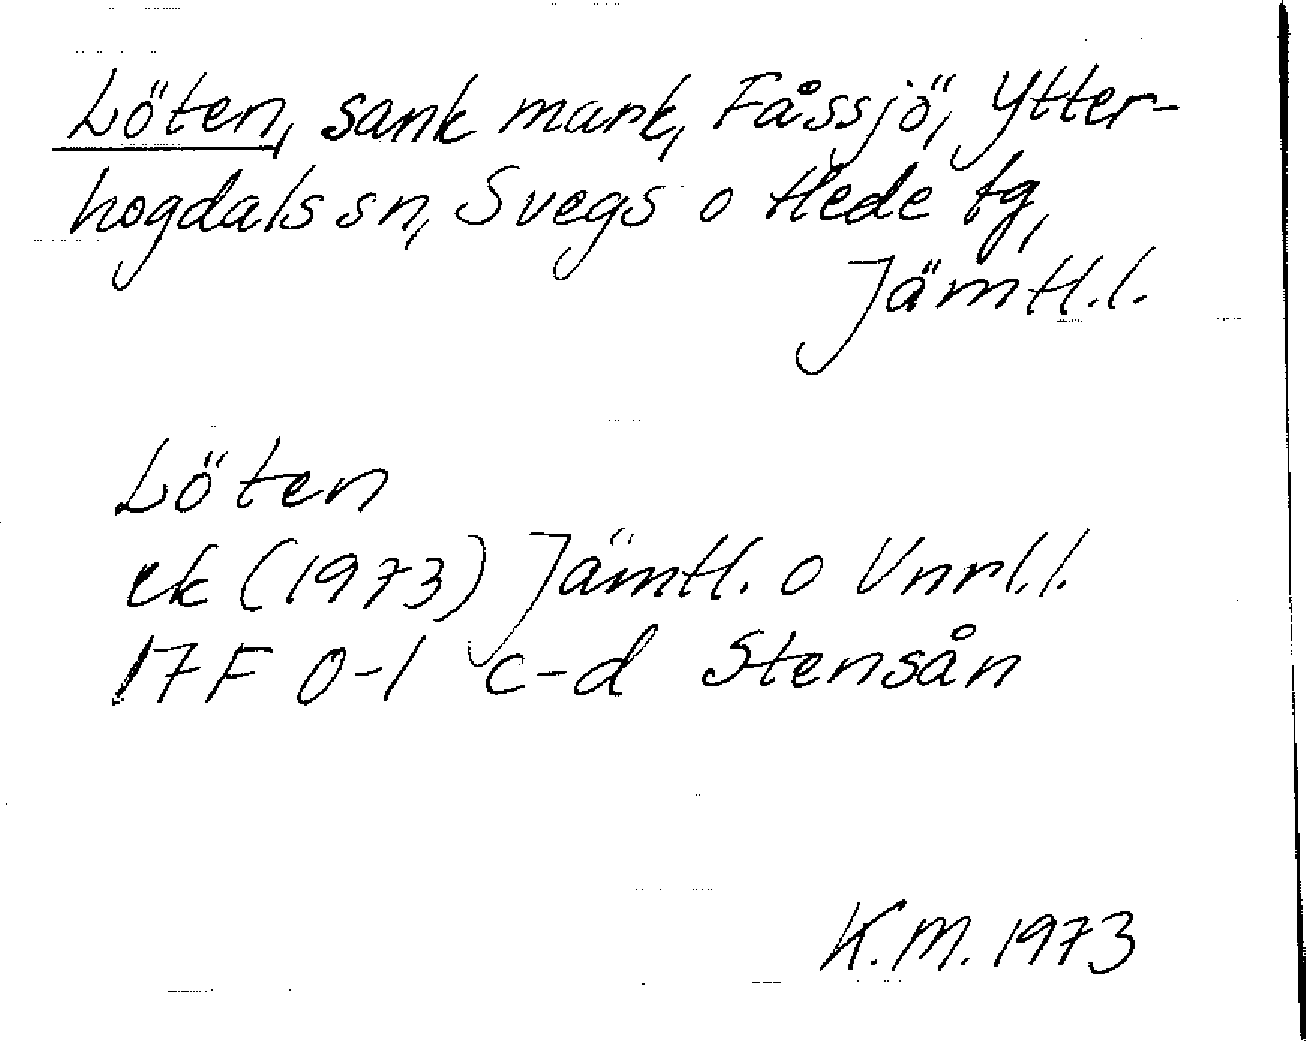 Löten, sank mark, Fåssjö, Ytter-
hogdals sn, Svegs o Hede tg,
Jämtl.l.
Löten
ek (1973) Jämtl. o Vnrl.l.
17F 0-1 c-d Stensån
K.M. 1973